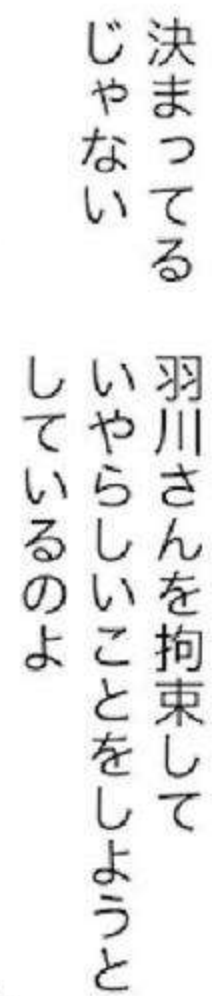 決まってる
じゃない
羽川さんを拘束して
いやらしいことをしようと
しているのよ